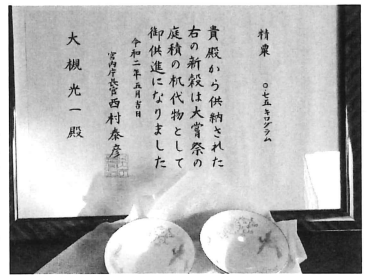 精粟 〇・七五キログラム
貴殿から供納された
右の新穀は大嘗祭の
庭積の机代物として
御供進になりました
令和二年五月吉日
宮内庁長官西村泰彦
大槻光一殿